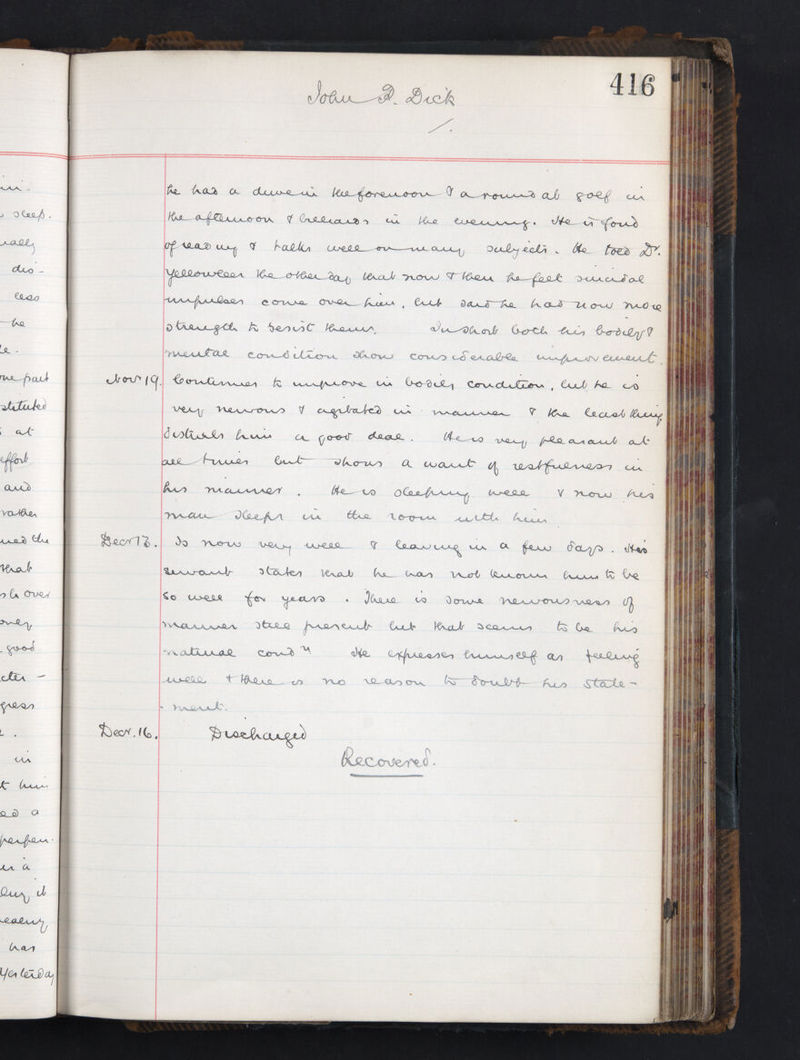 416
John R. Dick
he has a drive in the forenoon & a round at golf in
the afternoon & billiards in the evening. He is fond
of reading & talks well on many subjects. He told Dr.
Yellowlees the other day that now & then he feels suicidal
impulses come over him, but said he had now more
strength to resist them. In short both his bodily &
mental condition show considerable improvement.
Novr 19. Continues to improve in bodily condition, but he is
very nervous & agitated in manner & the least thing
disturbs him a good deal. He is very pleasant at
all times but shows a want of restfulness in
his manner. He is sleeping well & now his
man sleeps in the room with him.
Decr 13. Is now very well & leaving in a few days. His
servant states that he has not known him to be
so well for years. There is some nervousness of
manner still present but that seems to be his
natural condn. He expresses himself as feeling
well & there is no reason to doubt his state-
ment.
Decr. 16. Discharged
Recovered.
sleep.
dis-
less
he
me part
at
effort
and
rather
that
good
in
t him
a
has
yesterday